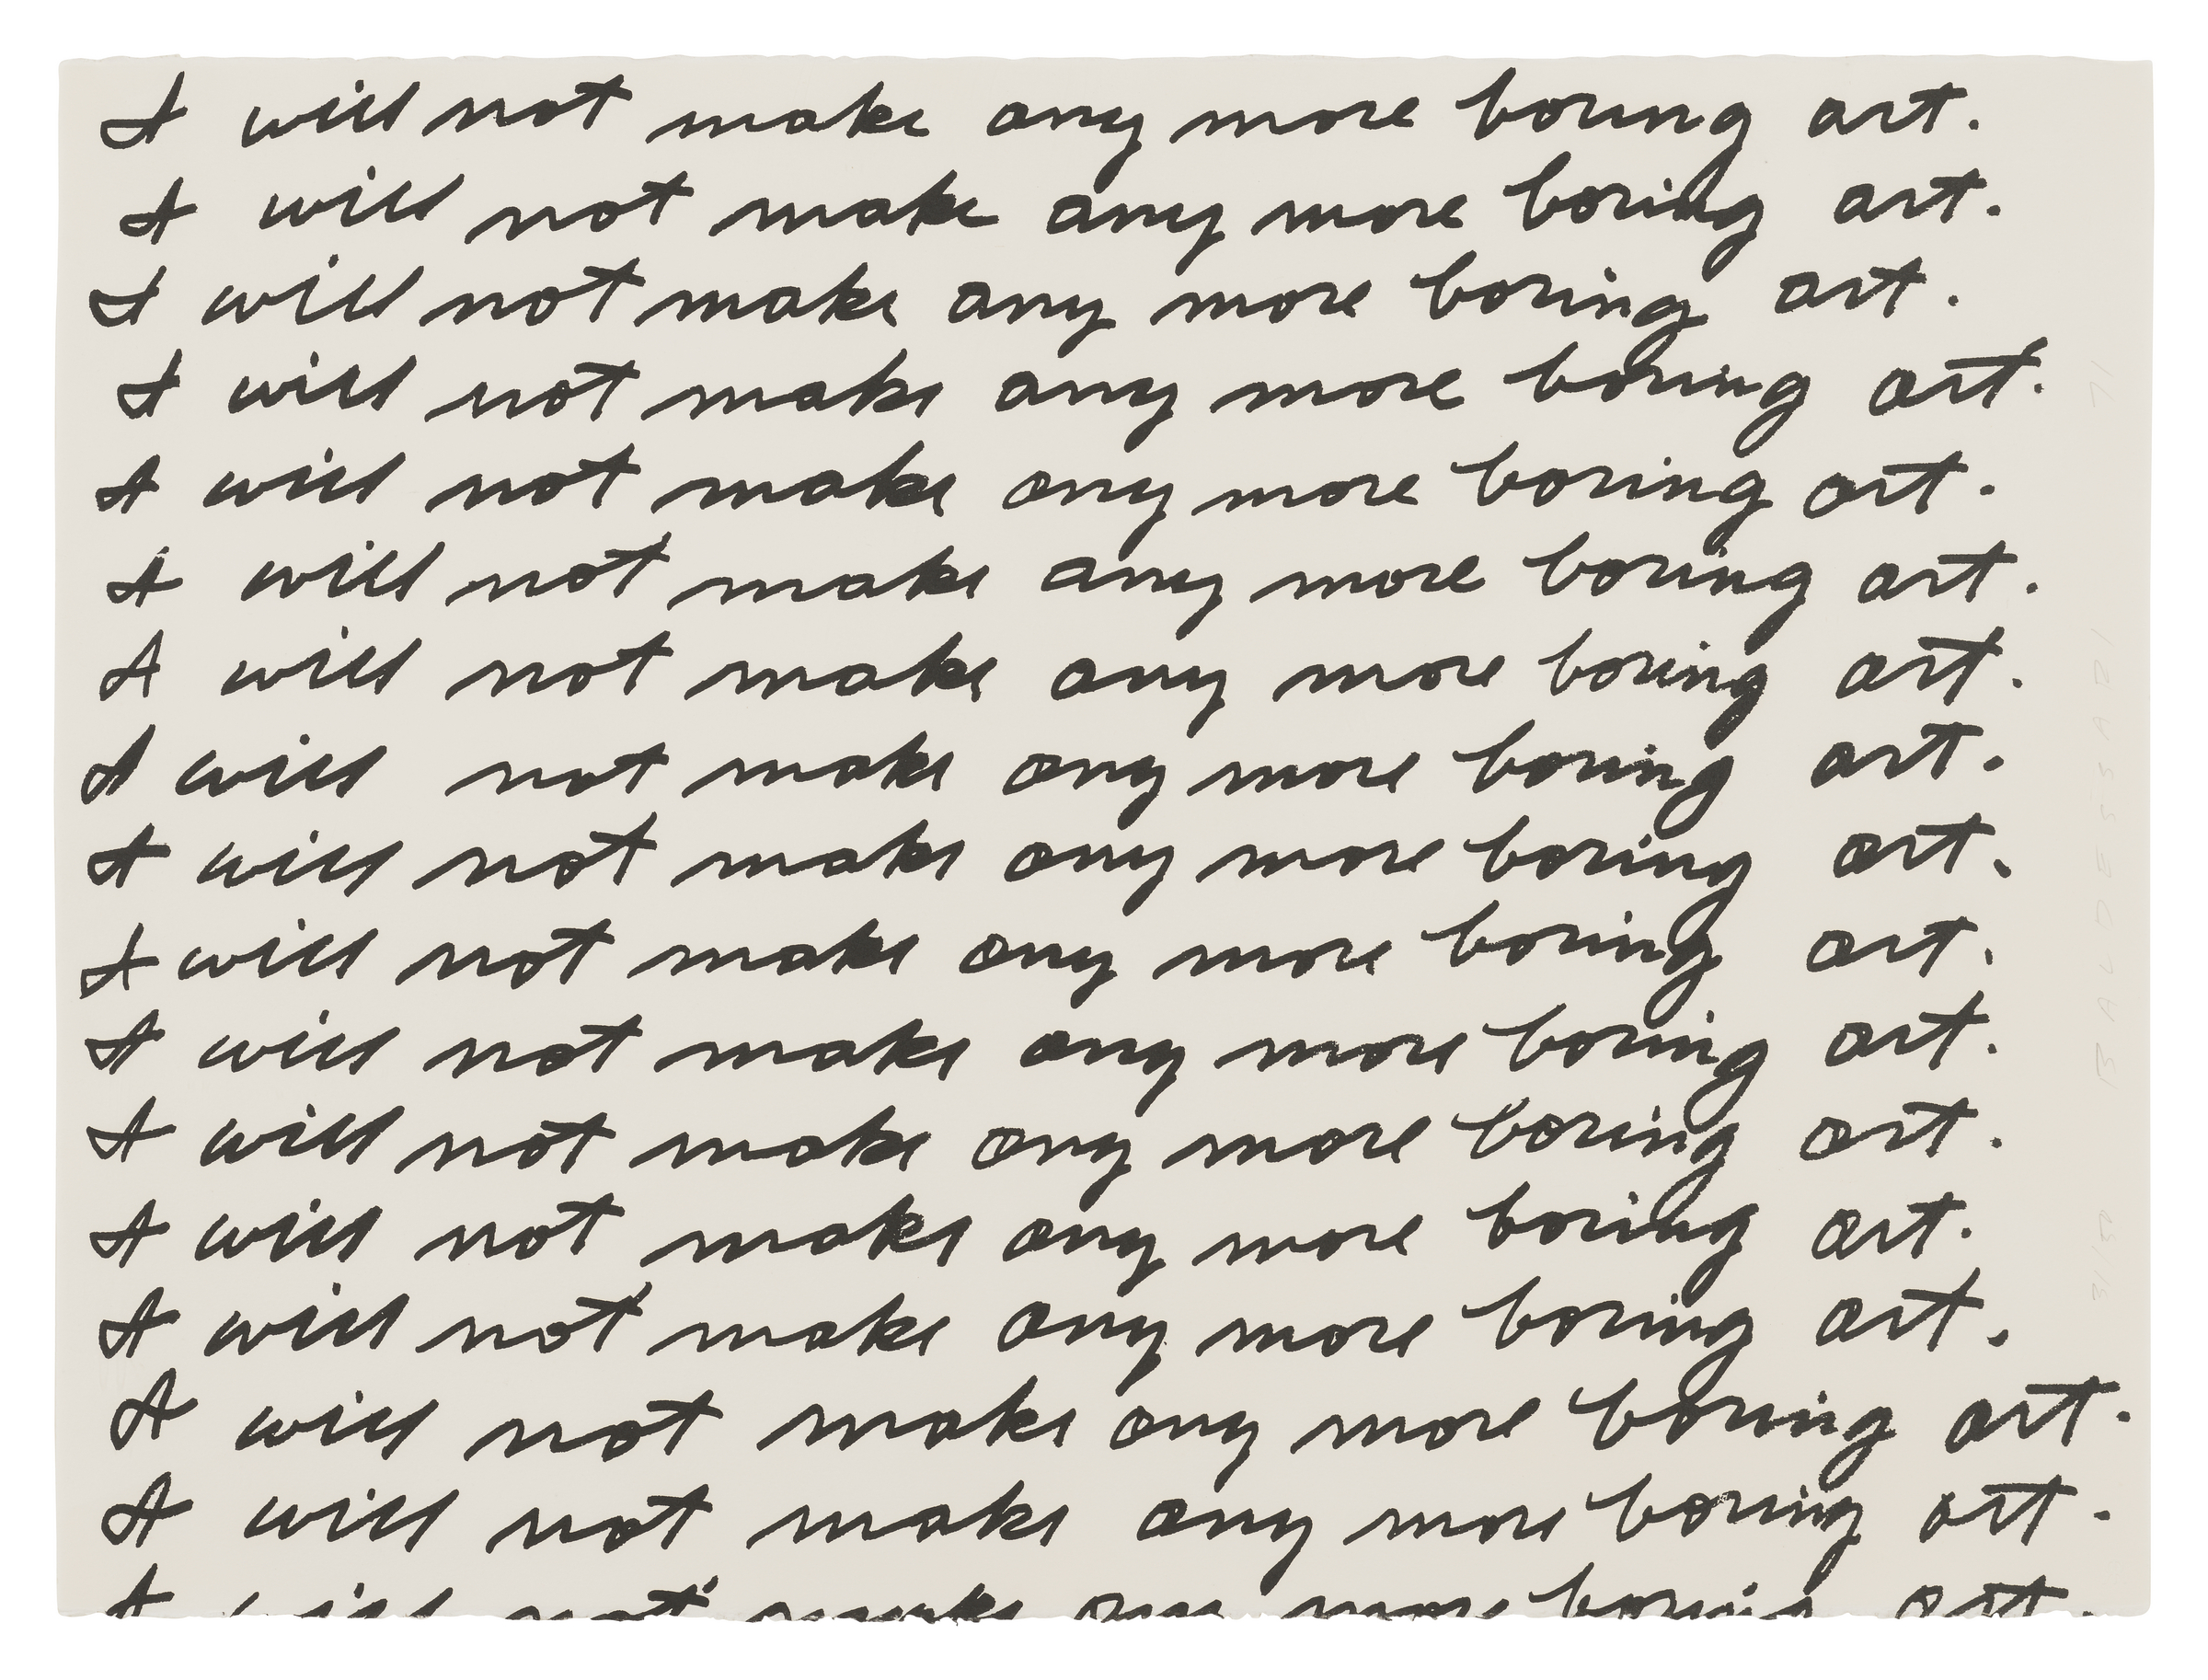 I will not make any more boring art.
I will not make any more boring art.
I will not make any more boring art.
I will not make any more boring art.
I will not make any more boring art.
I will not make any more boring art.
I will not make any more boring art.
I will not make any more boring art.
I will not make any more boring art.
I will not make any more boring art.
I will not make any more boring art.
I will not make any more boring art.
I will not make any more boring art.
I will not make any more boring art.
I will not make any more boring art.
I will not make any more boring art.
I will not make any more boring art.
31/50 BALDESSARI 71